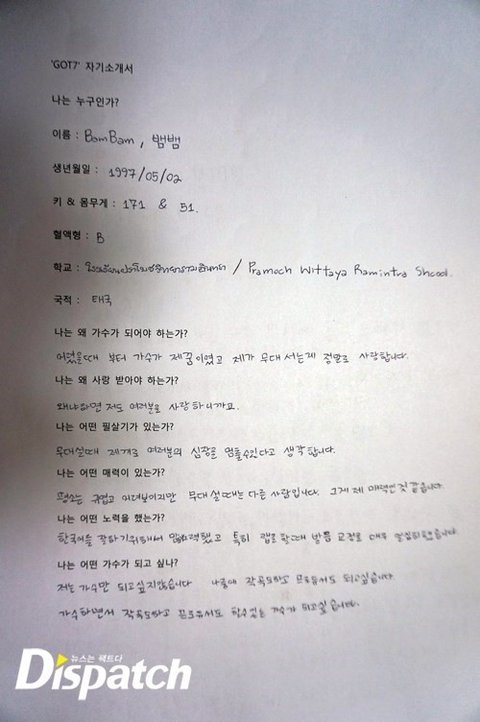 'GOT7' 자기소개서
나는 누구인가?
이름 : BamBam, 뱀뱀
생년월일 : 1997/05/02
키 & 몸무게 : 171 & 51.
혈액형 : B
학교 : / Pramoch Wittaya Ramintra Shcool.
국적 : 태국
나는 왜 가수가 되어야 하는가?
어렸을때 부터 가수가 제 꿈이였고 제가 무대 서는게 정말로 사랑합니다.
나는 왜 사랑 받아야 하는가?
왜냐하면 저도 여러분을 사랑하니까요.
나는 어떤 필살기가 있는가?
무대설때 제게로 여러분의 심장을 멈출수있다고 생각합니다.
나는 어떤 매력이 있는가?
평소는 귀엽고 어려보이지만 무대 설때는 다른 사람입니다. 그게 제 매력인것 같습니다.
나는 어떤 노력을 했는가?
한국어를 잘하기위해서 노력했고 특히 랩을 할때 발음 교정을 매우 열심히
나는 어떤 가수가 되고 싶나?
저는 가수만 되고싶지않습니다 나중에 작곡도하고 프로듀서도 되고싶습니다.
가수하면서 작곡도하고 프로듀서도 할수있는 가수가 되고싶습니다.
뉴스는 팩트다
Dispatch